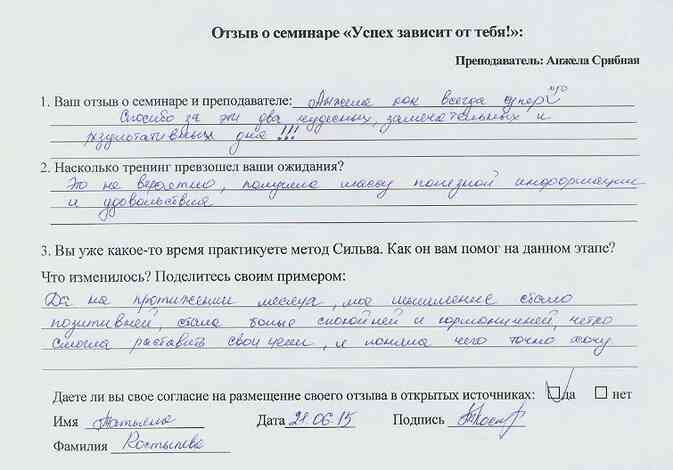 Отзыв о семинаре «Успех зависит от тебя!»:
Преподаватель: Анжела Срибная
1. Ваш отзыв о семинаре и преподавателе: Анжела как всегда супер
Спасибо за эти два чудесных, замечательных и
результативных дня !!!
2. Насколько тренинг превзошел ваши ожидания?
Это не вероятно, получила массу полезной информации
и удовольствия
3. Вы уже какое-то время практикуете метод Сильва. Как он вам помог на данном этапе?
Что изменилось? Поделитесь своим примером:
Да на протяжении месяца, мое мышление стало
позитивней, стала более спокойней и гормоничней, четко
смогла расставить свои цели, и поняла чего точно хочу
Даете ли вы свое согласие на размещение своего отзыва в открытых источниках: да нет
Имя Татьяна Дата 21.06.15 Подпись
Фамилия